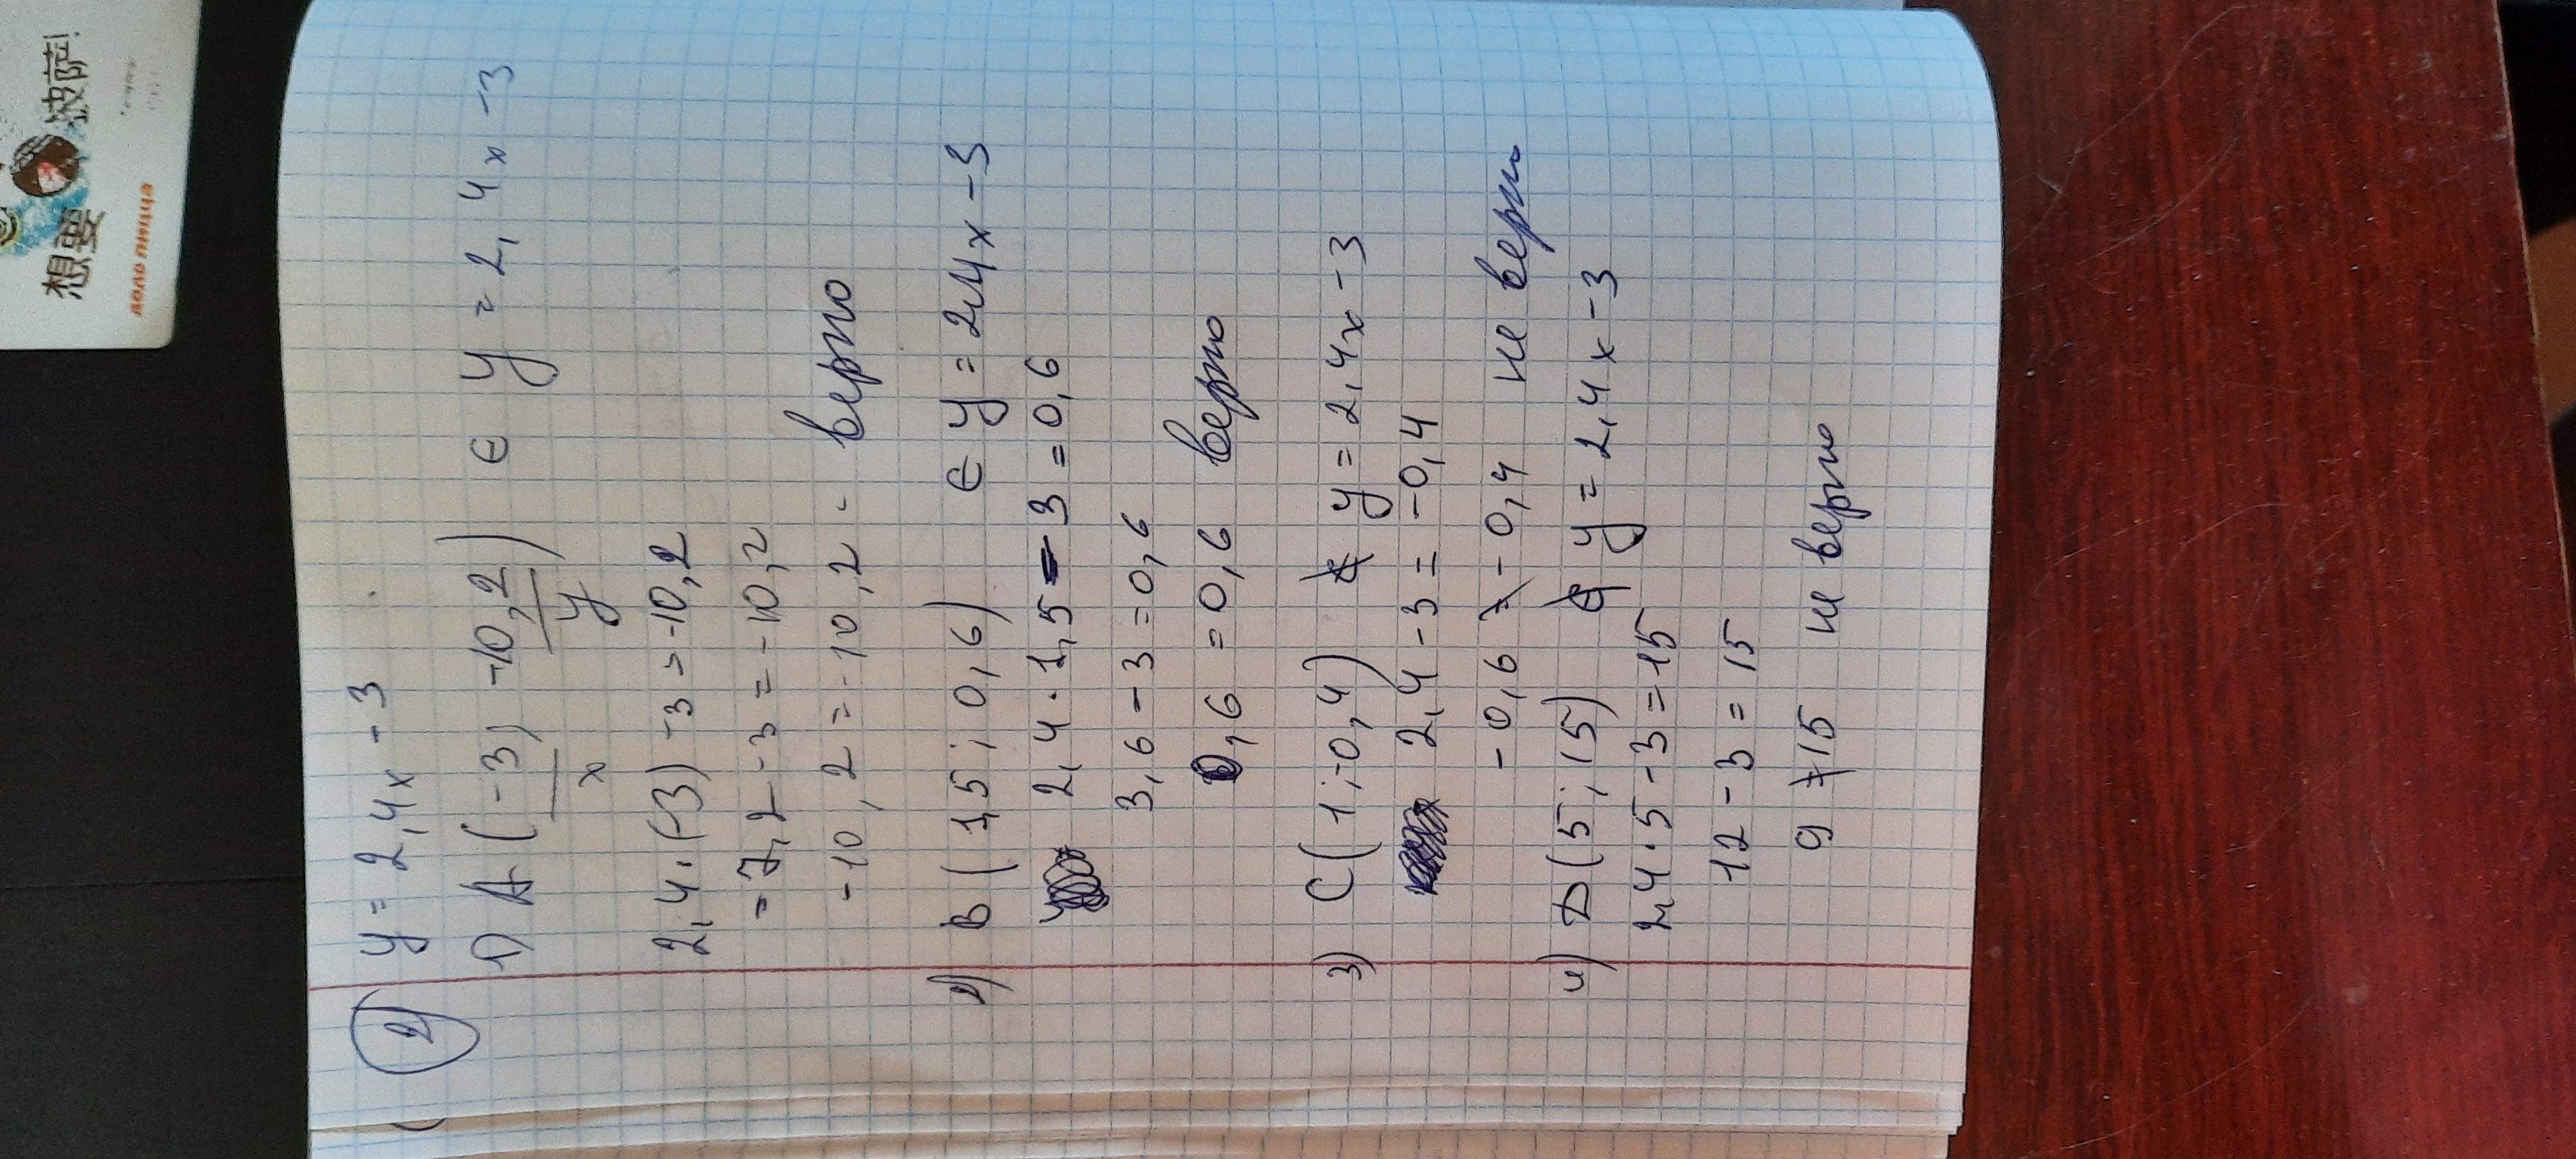 2 y = 2,4x - 3
1) A (-3; -10,2) ∈ y = 2,4x - 3
x y
2,4 · (-3) - 3 = -10,2
-7,2 - 3 = -10,2
-10,2 = -10,2 - верно
2) B (1,5; 0,6) ∈ y = 2,4x - 3
2,4 · 1,5 - 3 = 0,6
3,6 - 3 = 0,6
0,6 = 0,6 верно
3) C (1; -0,4) ∉ y = 2,4x - 3
2,4 - 3 = -0,4
-0,6 ≠ -0,4 не верно
4) D (5; 15) ∉ y = 2,4x - 3
2,4 · 5 - 3 = 15
12 - 3 = 15
9 ≠ 15 не верно
想要 披萨!